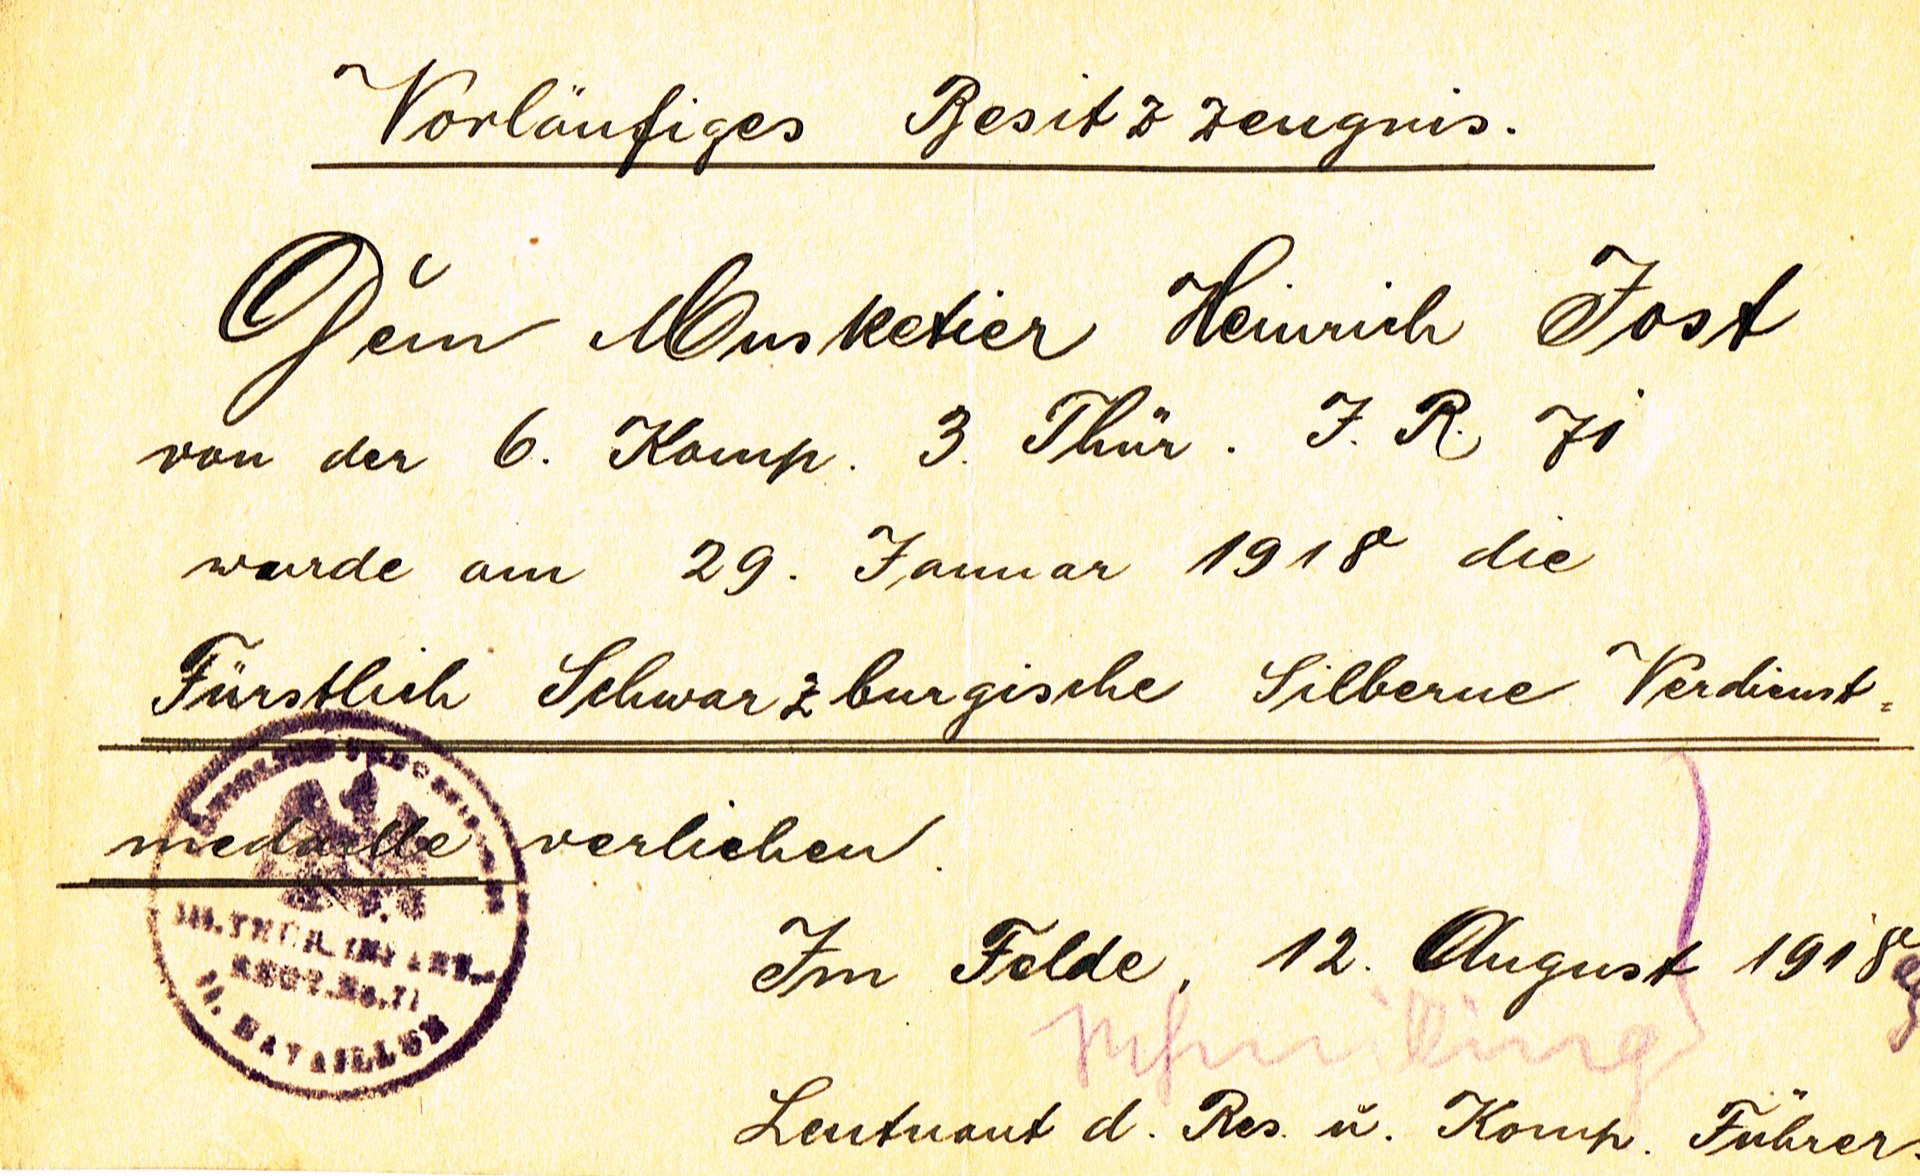 Vorläufiges Besitzzeugnis.
Dem Musketier Heinrich Jost
von der 6. Komp. 3. Thür. J. R. 71
wurde am 29. Januar 1918 die
Fürstlich Schwarzburgische Silberne Verdienst-
medaille verliehen.
III. THÜR. INFANT.
REGT. No. 71
II. BATAILLON
Im Felde, 12. August 1918
Leutnant d. Res. u. Komp. Führer.